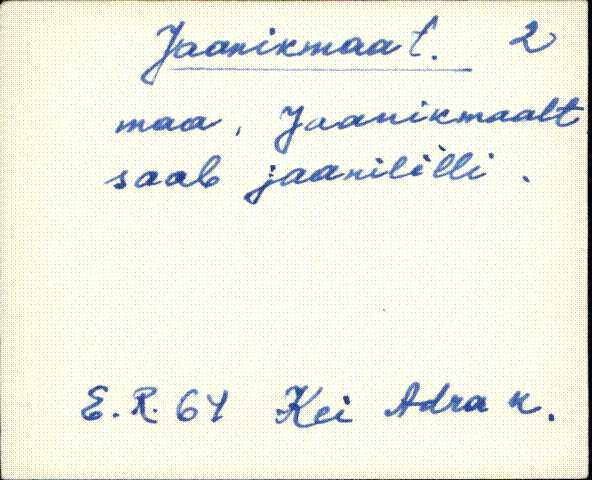 Jaanikmaa t. 2
maa, Jaanikmaalt
saab jaanililli.
E. R. 64 Kei Adra k.